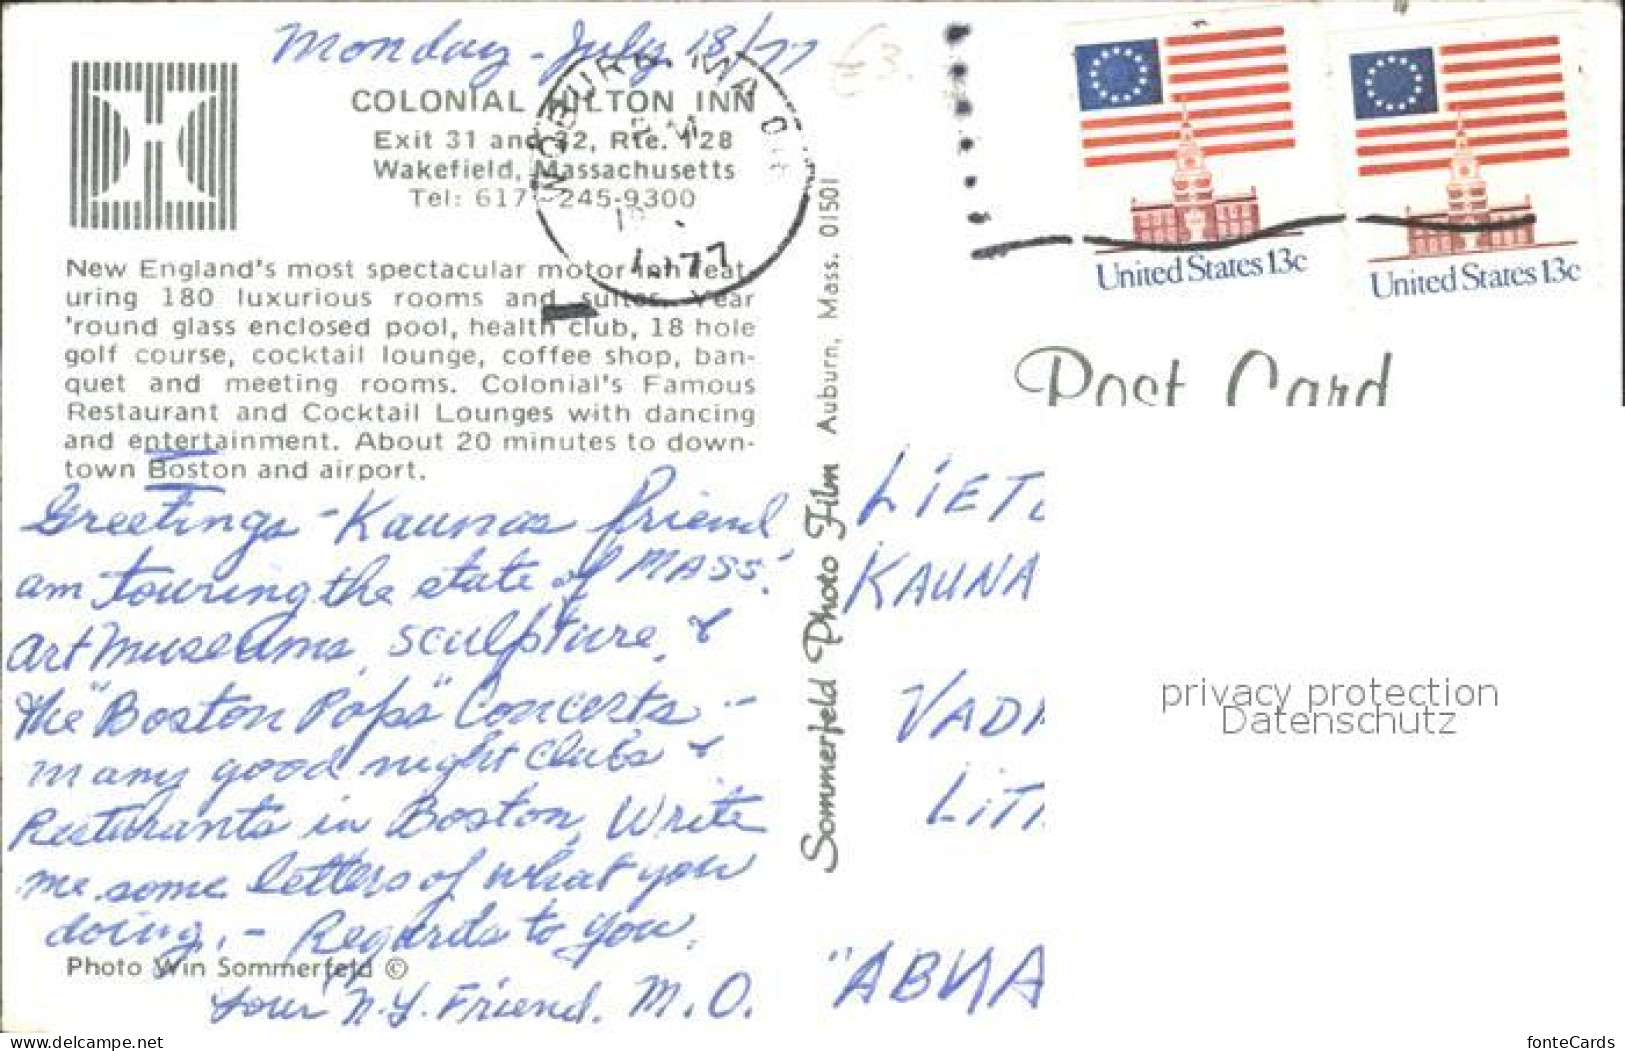 Monday - July 18/77
£3.
COLONIAL HILTON INN
Exit 31 and 32, Rte. 128
Wakefield, Massachusetts
Tel: 617-245-9300
WOBURN, MA
PM
1977
New England's most spectacular motor inn feat-
uring 180 luxurious rooms and suites. Year
'round glass enclosed pool, health club, 18 hole
golf course, cocktail lounge, coffee shop, ban-
quet and meeting rooms. Colonial's Famous
Restaurant and Cocktail Lounges with dancing
and entertainment. About 20 minutes to down-
town Boston and airport.
Greetings - Kaunas friend
am touring the state of MASS.
Art museums, sculpture, &
the "Boston Pops" Concerts -
many good night clubs &
Resturants in Boston, Write
me some letters of what you
doing, - Regards to you,
Photo Win Sommerfeld ©
Your N.Y. Friend. M.O.
Sommerfeld Photo Film Auburn, Mass. 01501
United States 13c
United States 13c
Post Card
LIET
KAUNA
VADA
LIT
"ABNA
privacy protection
Datenschutz
www.delcampe.net
fonteCards